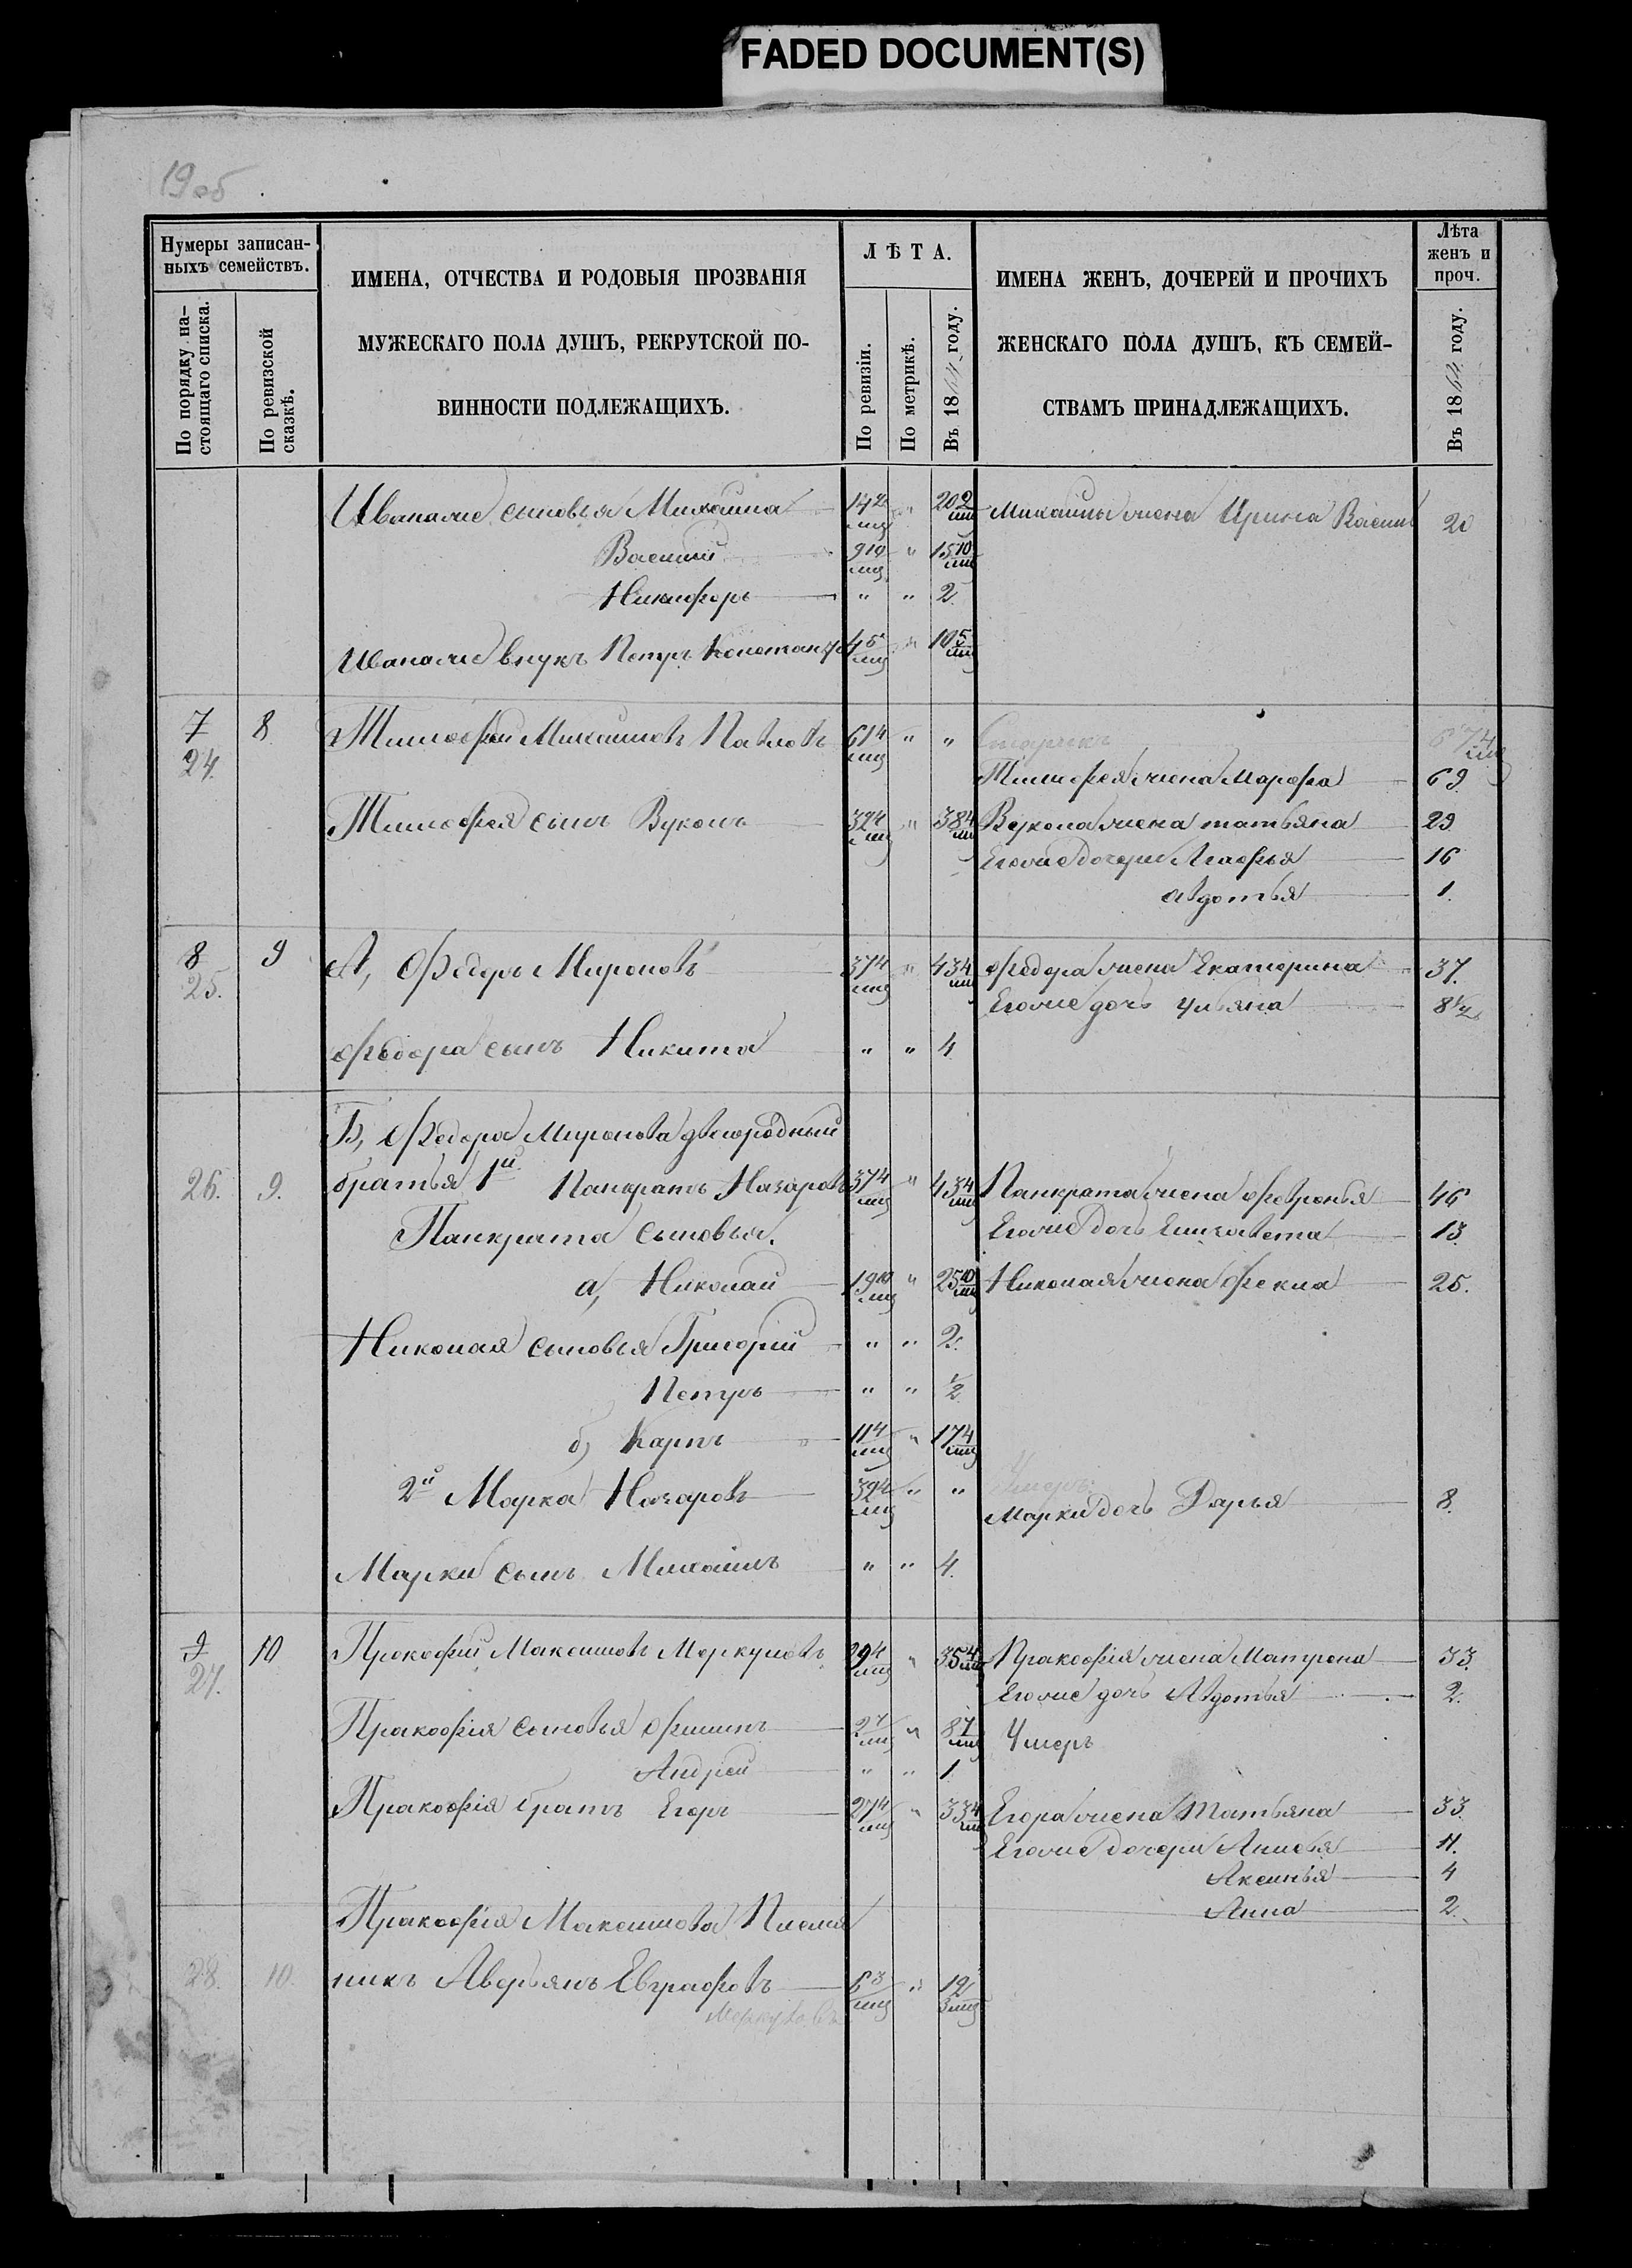 FADED DOCUMENT(S)
19об
Нумеры записан-
ныхъ семействъ.
По порядку на-
стоящаго списка.
По ревизской
сказкѣ.
ИМЕНА, ОТЧЕСТВА И РОДОВЫЯ ПРОЗВАНІЯ
МУЖЕСКАГО ПОЛА ДУШЪ, РЕКРУТСКОЙ ПО-
ВИННОСТИ ПОДЛЕЖАЩИХЪ.
ЛѢТА.
По ревизіи.
По метрикѣ.
Въ 1864 году.
ИМЕНА ЖЕНЪ, ДОЧЕРЕЙ И ПРОЧИХЪ
ЖЕНСКАГО ПОЛА ДУШЪ, КЪ СЕМЕЙ-
СТВАМЪ ПРИНАДЛЕЖАЩИХЪ.
Лѣта
женъ и
проч.
Въ 1864 году.
Ивана же сыновья Михаила 14 2/мц " 20 2/мц Михаилы жена Ирина Васил 20
Василий 9 10/мц " 15 10/мц
Никифоръ " " 2
Ивана же внукъ Петръ Констант 4 5/мц " 10 5/мц
7 8 Тимофей Михаиловъ Павловъ 61 4/мц " " Старикъ 67 4/мц
24. Тимофея жена Марфа 69
Тимофея сынъ Вуколъ 32 4/мц " 38 4/мц Вукола жена татьяна 29
Его же дочери Агафья 16
авдотья 1.
8 9 А, Федоръ Мироновъ 37 4/мц " 43 4/мц федора жена Екатерина 37.
25. Его же дочь Ульяна 8 1/2
федора сынъ Никита " " 4
Б, Федора Миронова двоюродный
26. 9. братья 1й Панкратъ Назаровъ 37 4/мц " 43 4/мц Панкрата жена февронья 46
Панкрата сыновья. Его же дочь Елизавета 13
а, Николай 19 10/мц " 25 10/мц Николая жена фекла 25.
Николая сыновья Григорій " " 2.
Петръ " " 1/2
б, Карпъ 11 4/мц " 17 4/мц
2й Марка Назаровъ 32 4/мц " " Умеръ
Марки дочь Дарья 8.
Марки сынъ Михаилъ " " 4.
9 10 Прокофий Максимовъ Меркуловъ 29 4/мц " 35 4/мц Пракофія жена Матрена 33.
27. Его же дочь Авдотья 2.
Пракофія сыновья филипъ 2 7/мц " 8 7/мц Умеръ
Андрей " " 1
Пракофія братъ Егоръ 27 4/мц " 33 4/мц Егора жена Татьяна 33.
Его же дочери Анисья 11.
Аксинья 4
Анна 2.
Пракофія Максимова Племя
28. 10. никъ Аверьянъ Евграфовъ 6 3/мц " 12/3мц
Меркуловъ